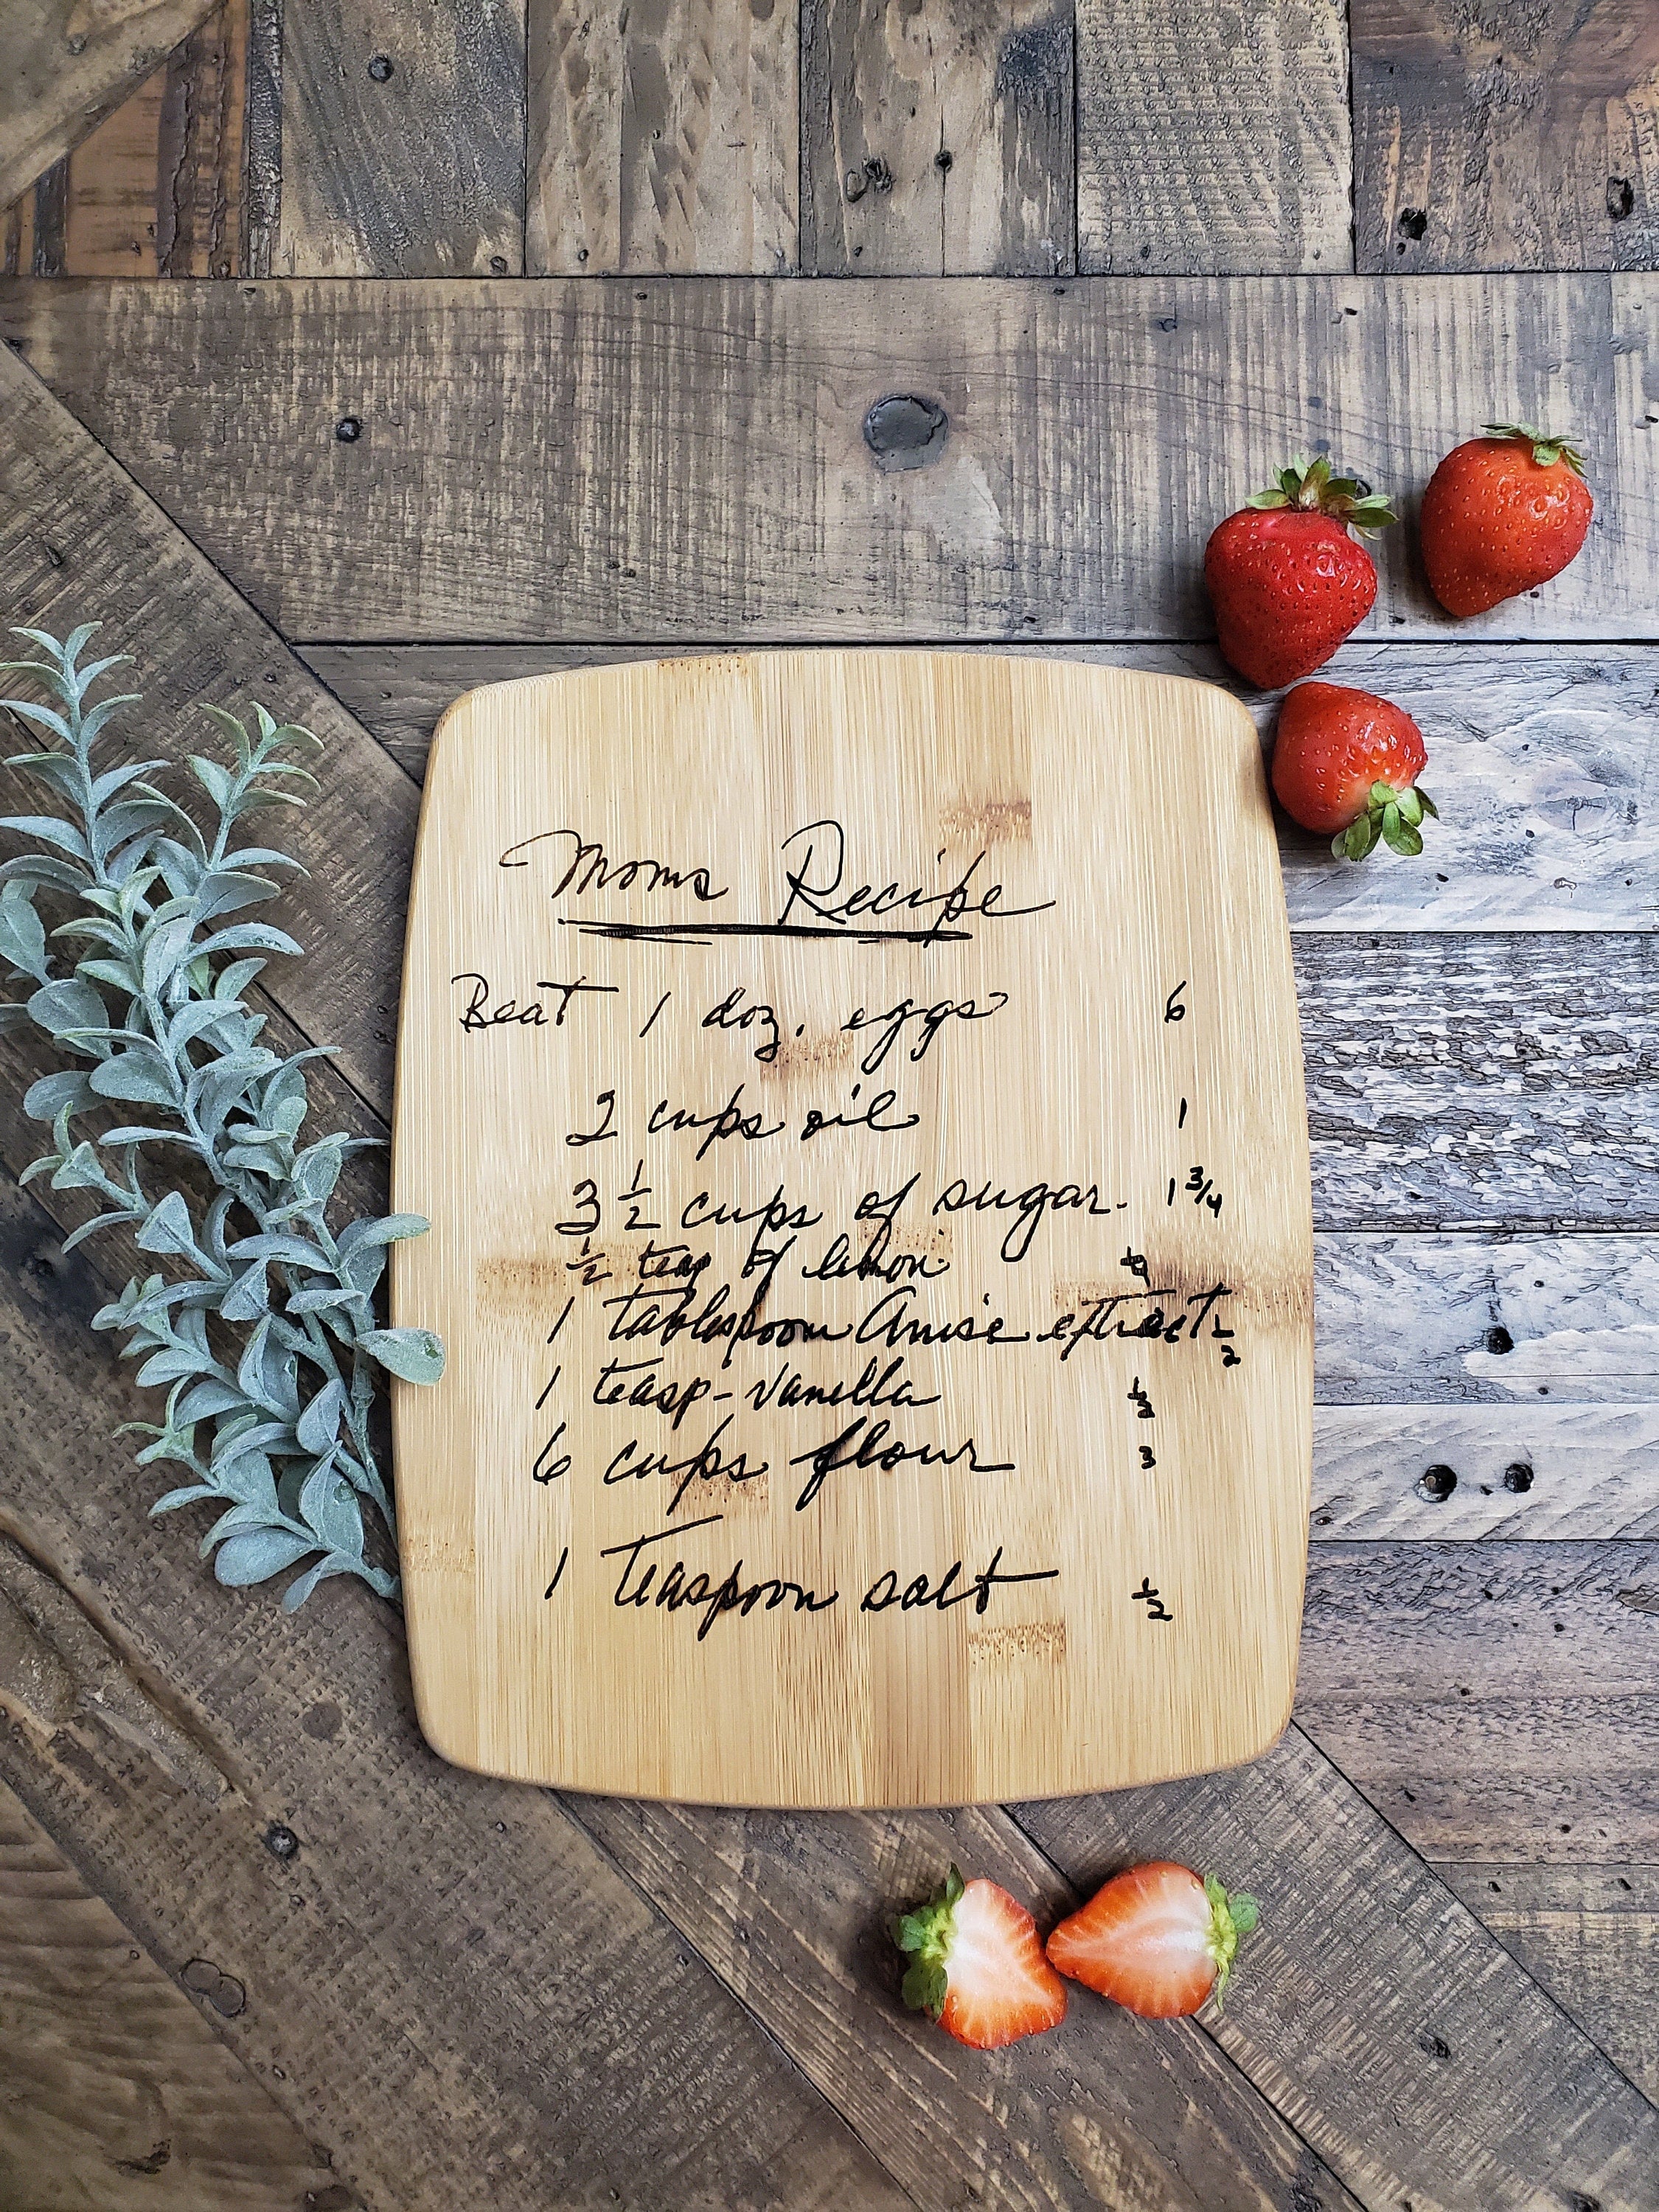 Moms Recipe
Beat 1 doz. eggs 6
2 cups oil 1
3 1/2 cups of sugar. 1 3/4
1/2 teas of lemon
1 tablespoon Anise extract 1/2
1 teasp - vanilla 1/2
6 cups flour 3
1 Teaspoon salt 1/2